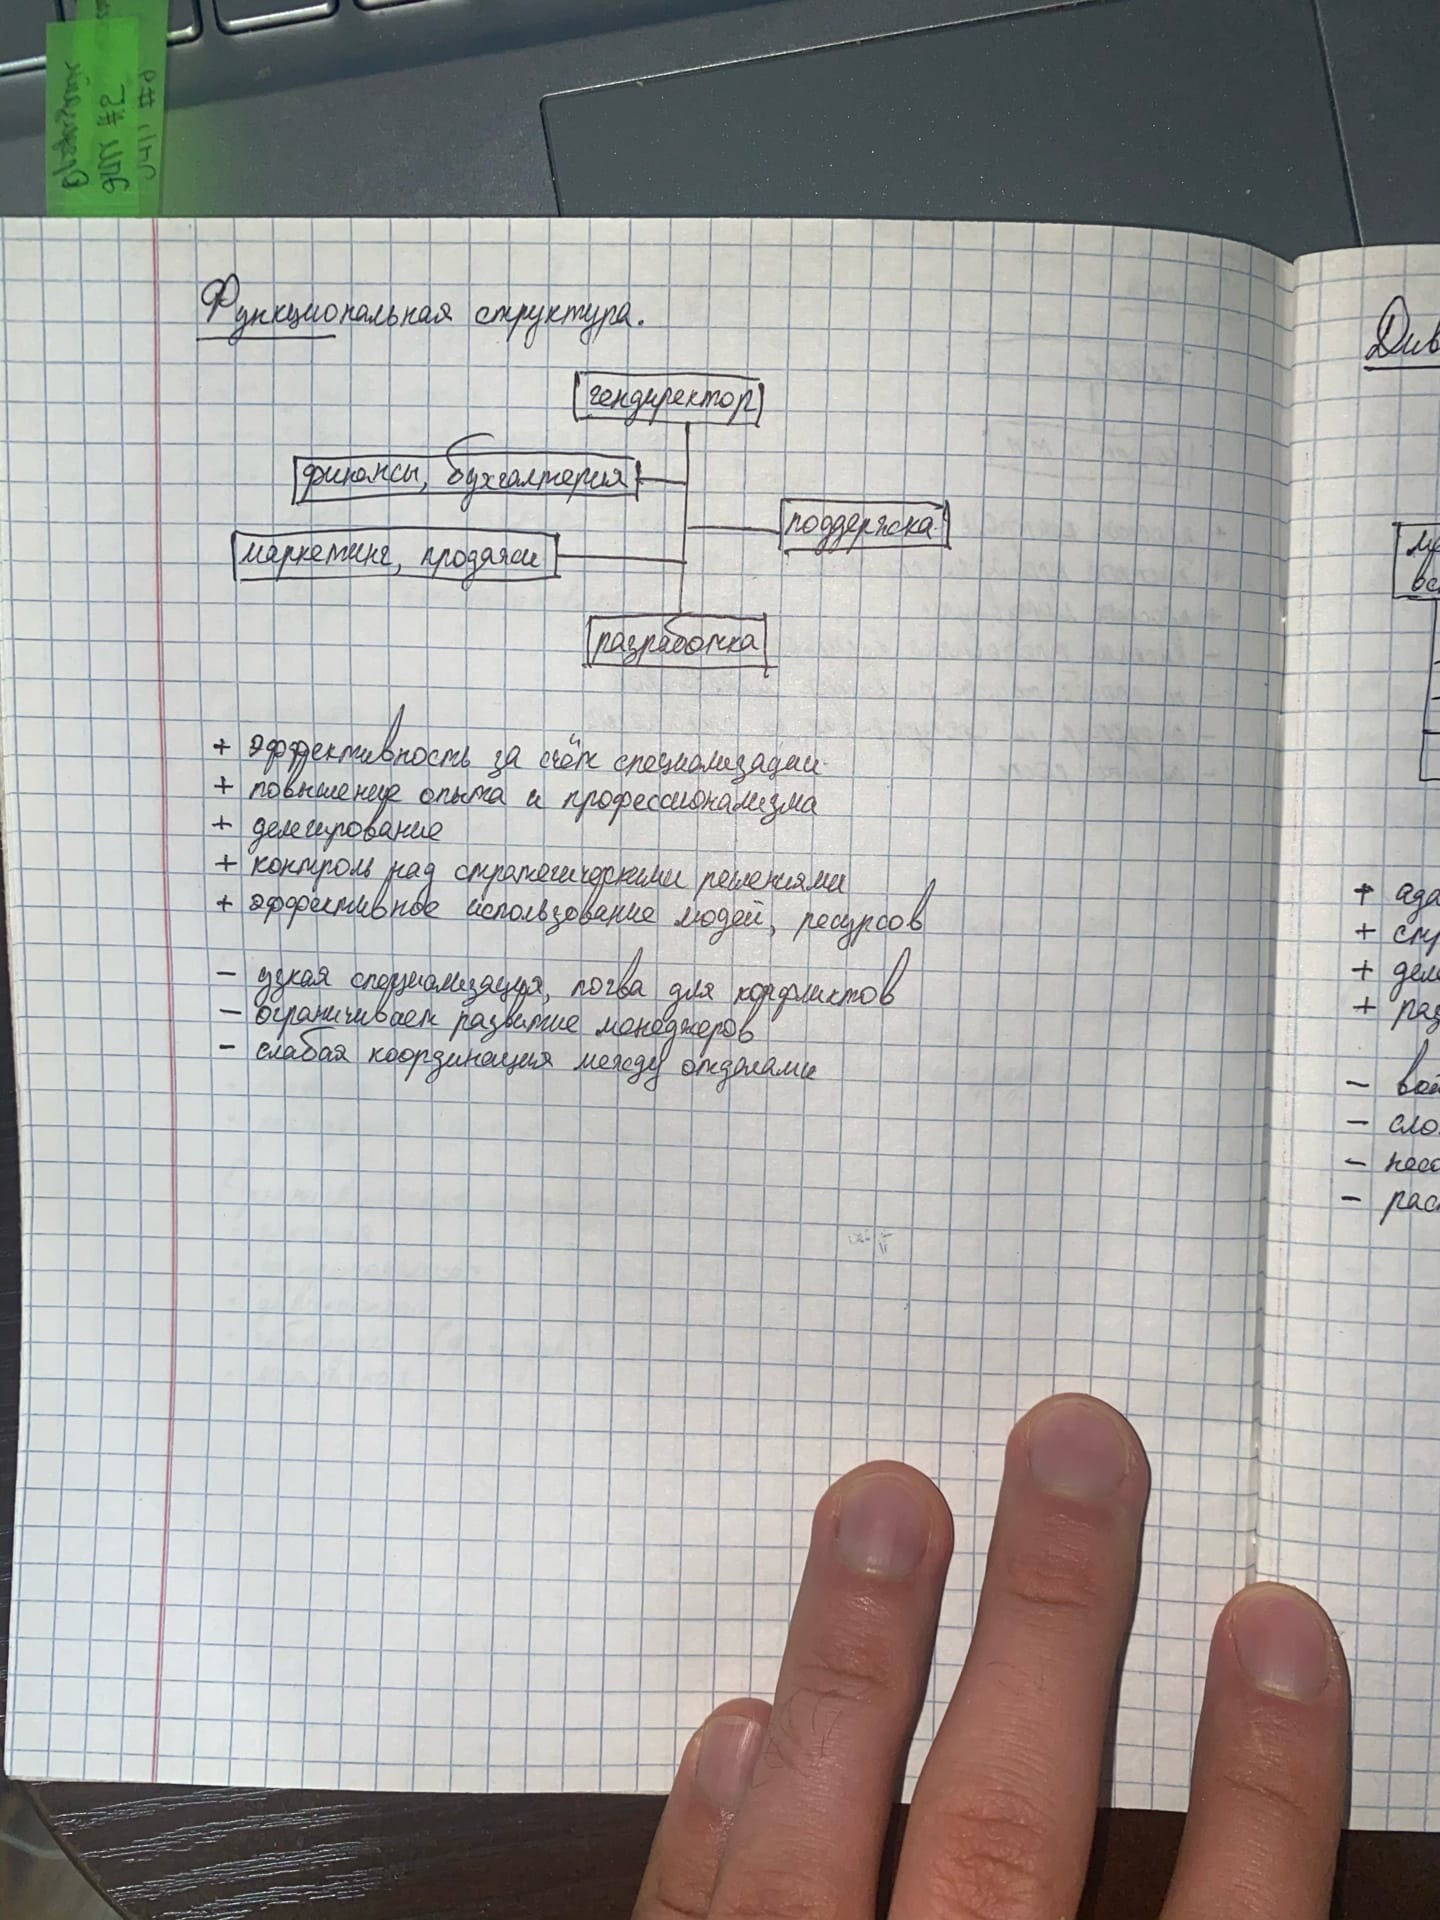 Функциональная структура.
гендиректор
финансы, бухгалтерия
поддержка
маркетинг, продажи
разработка
+ эффективность за счёт специализации
+ повышение опыта и профессионализма
+ делегирование
+ контроль над стратегическими решениями
+ эффективное использование людей, ресурсов
- узкая специализация, почва для конфликтов
- ограничивает развитие менеджеров
- слабая координация между отделами
Див
+ ада
+ стр
+ дел
+ раз
- вой
- сло
- несо
- рас